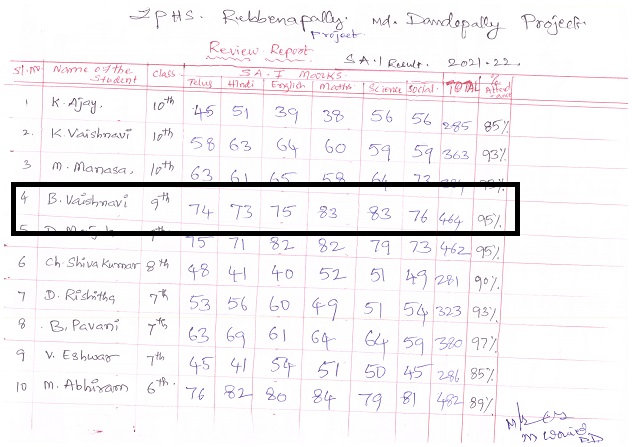 ZPHS. Rebbenapally. Md. Dandepally Project.
Project
Review Report
S.A.I Result. 2021-22.
S.A.I Marks.
Sl.No Name of the Student Class Telugu Hindi English Maths Science Social TOTAL
1 K. Ajay. 10th 45 51 39 38 56 56 285 85%
2. K. Vaishnavi 10th 58 63 64 60 59 59 363 93%
3 M. Manasa. 10th 63 61 65 58 64 73
4 B. Vaishnavi 9th 74 73 75 83 83 76 464 95%
5 75 71 82 82 79 73 462 95%
6 Ch. Shiva Kumar 8th 48 41 40 52 51 49 281 90%
7 D. Rishitha 7th 53 56 60 49 51 54 323 93%
8 B. Pavani 7th 63 69 61 64 64 59 380 97%
9 V. Eshwar 7th 45 41 54 51 50 45 286 85%
10 M. Abhiram 6th 76 82 80 84 79 81 482 89%